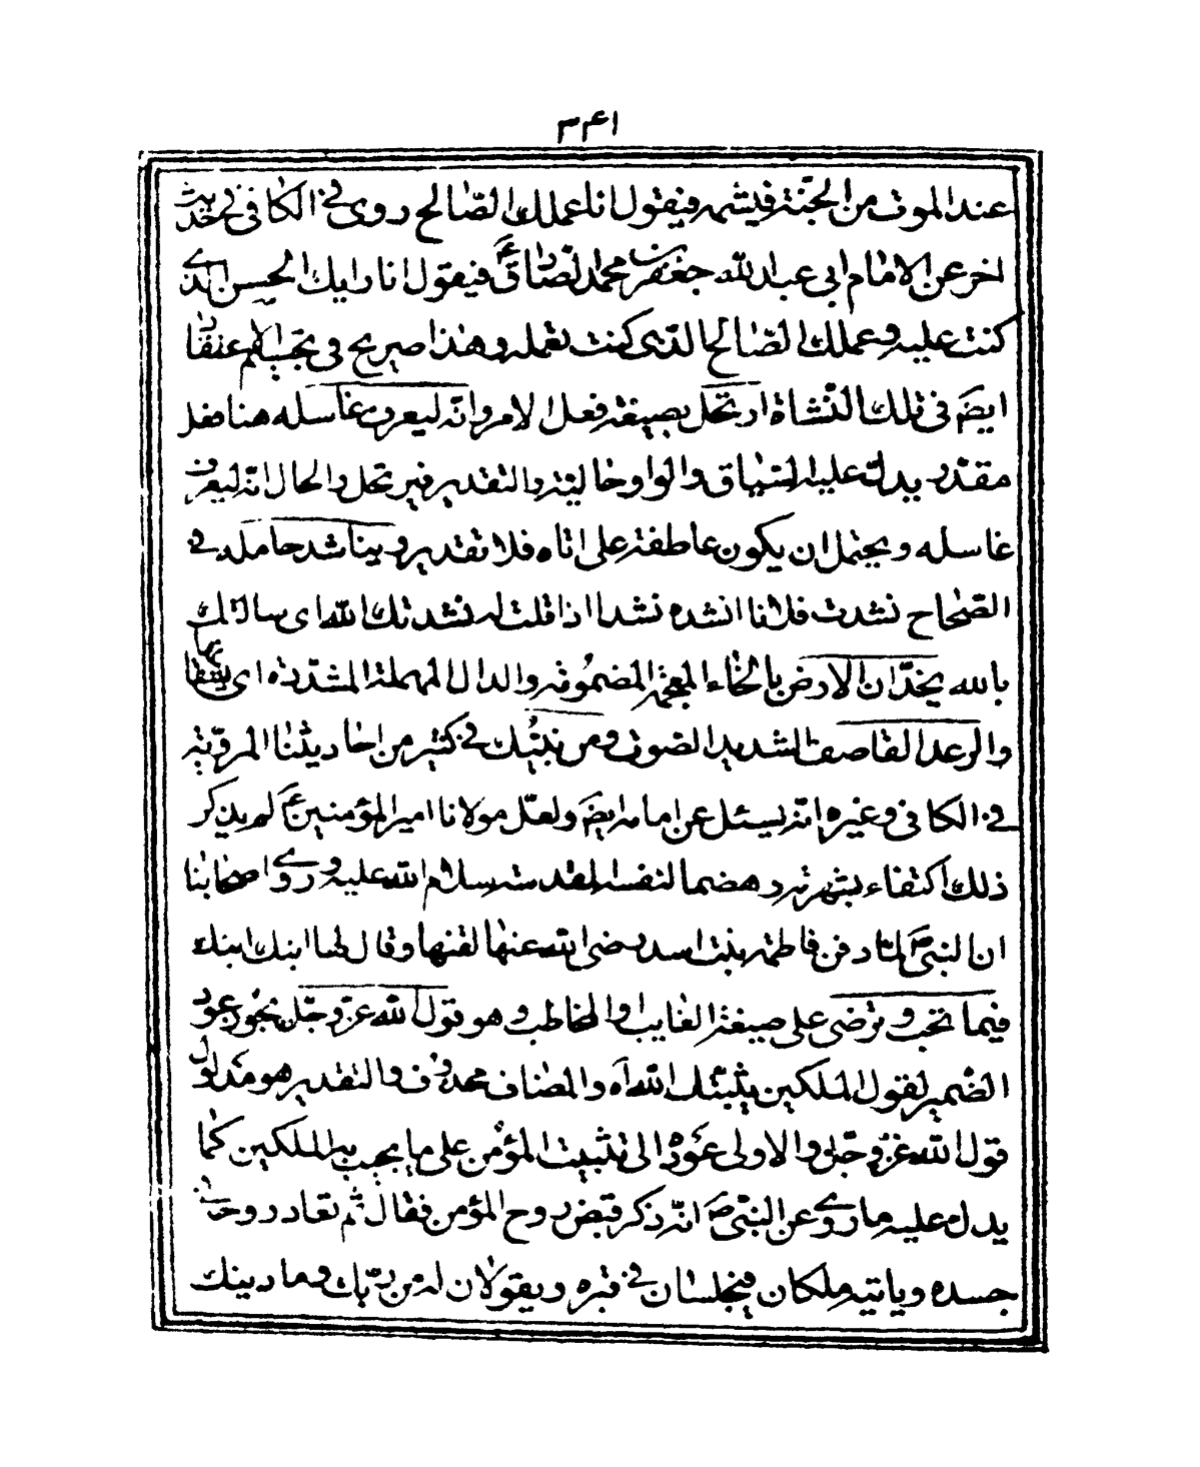 ۳۴۱
عند الموت من الجنّة فيشمه فيقول انا عملك الصّالح روى فى الكافى فى حديث
اخر عن الامام ابى عبد الله جعفر بن محمد الصّادق ع فيقول انا رايك الحسن الذى
كنت عليه و عملك الصّالح الذى كنت تعمله و هذا صريح فى تجسّم
ايضَ فى تلك النشاة ارتحل بصيغة فعل الامر و انّه ليعرف غاسله هنا فعل
مقدّر يدلّ عليه السّياق و الواو حاليّة و التقدير فيرتحل و الحال انّه ليعرف
غاسله و يحتمل ان يكون عاطفة على اتاه فلا تقدير و يناشد حامله فى
الصّحاح نشدت فلانا انشده نشدا اذا قلت له نشدتك الله اى سالتك
بالله يخدّان الارض بالخاء المعجمة المضمومة و الدال المهملة المشدّدة اى يشقّانها
و الرعد القاصف الشديد الصوت و من نبيّك فى كثير من احاديثنا المرويّة
فى الكافى و غيره انّه يسئل عن امامه ايضَ و لعلّ مولانا امير المؤمنين ع لم يذكر
ذلك اكتفاء بشهرته و هضما لنفسه المقدسة سلام الله عليه و روى اصحابنا
ان النبىّ ص لمّا دفن فاطمة بنت اسد رضى الله عنها لقنها و قال لها ابنك ابنك
فيما تحب و ترضى على صيغة الغايب او المخاطب و هو قول الله عزّ و جلّ يجوز عود
الضّمير لقول الملكين يثبّتك الله اه و المضاف محذوف و التقدير هو مدلول
قول الله عزّ و جلّ و الاولى عوده الى تثبيت المؤمن على ما يجيب به الملكين كما
يدل عليه ما روى عن النبىّ ص انّه ذكر قبض روح المؤمن فقال ثم تعاد روحه فى
جسده و ياتيه ملكان فيجلسان فى قبره و يقولان له من ربّك و ما دينك